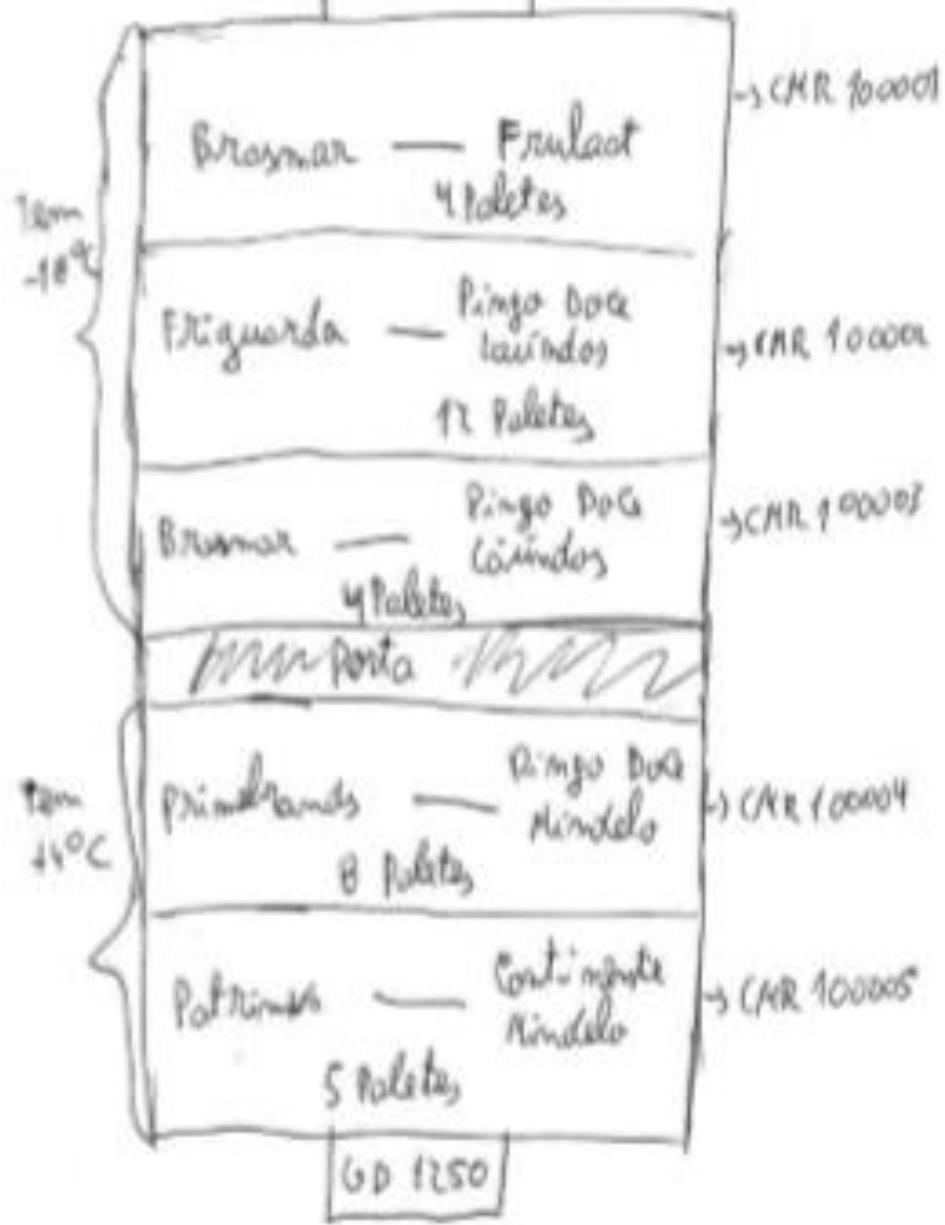 → CMR 100001
Brasmar — Frulact
4 Paletes
Tem
-18ºC
Friguarda — Pingo Doce
Laúndos
12 Paletes
→ CMR 100002
Brasmar — Pingo Doce
Laúndos
4 Paletes
→ CMR 100003
Porta
Tem
+4ºC
Primebrands — Pingo Doce
Mindelo
8 Paletes
→ CMR 100004
— Continente
Mindelo
5 Paletes
→ CMR 100005
GD 1250